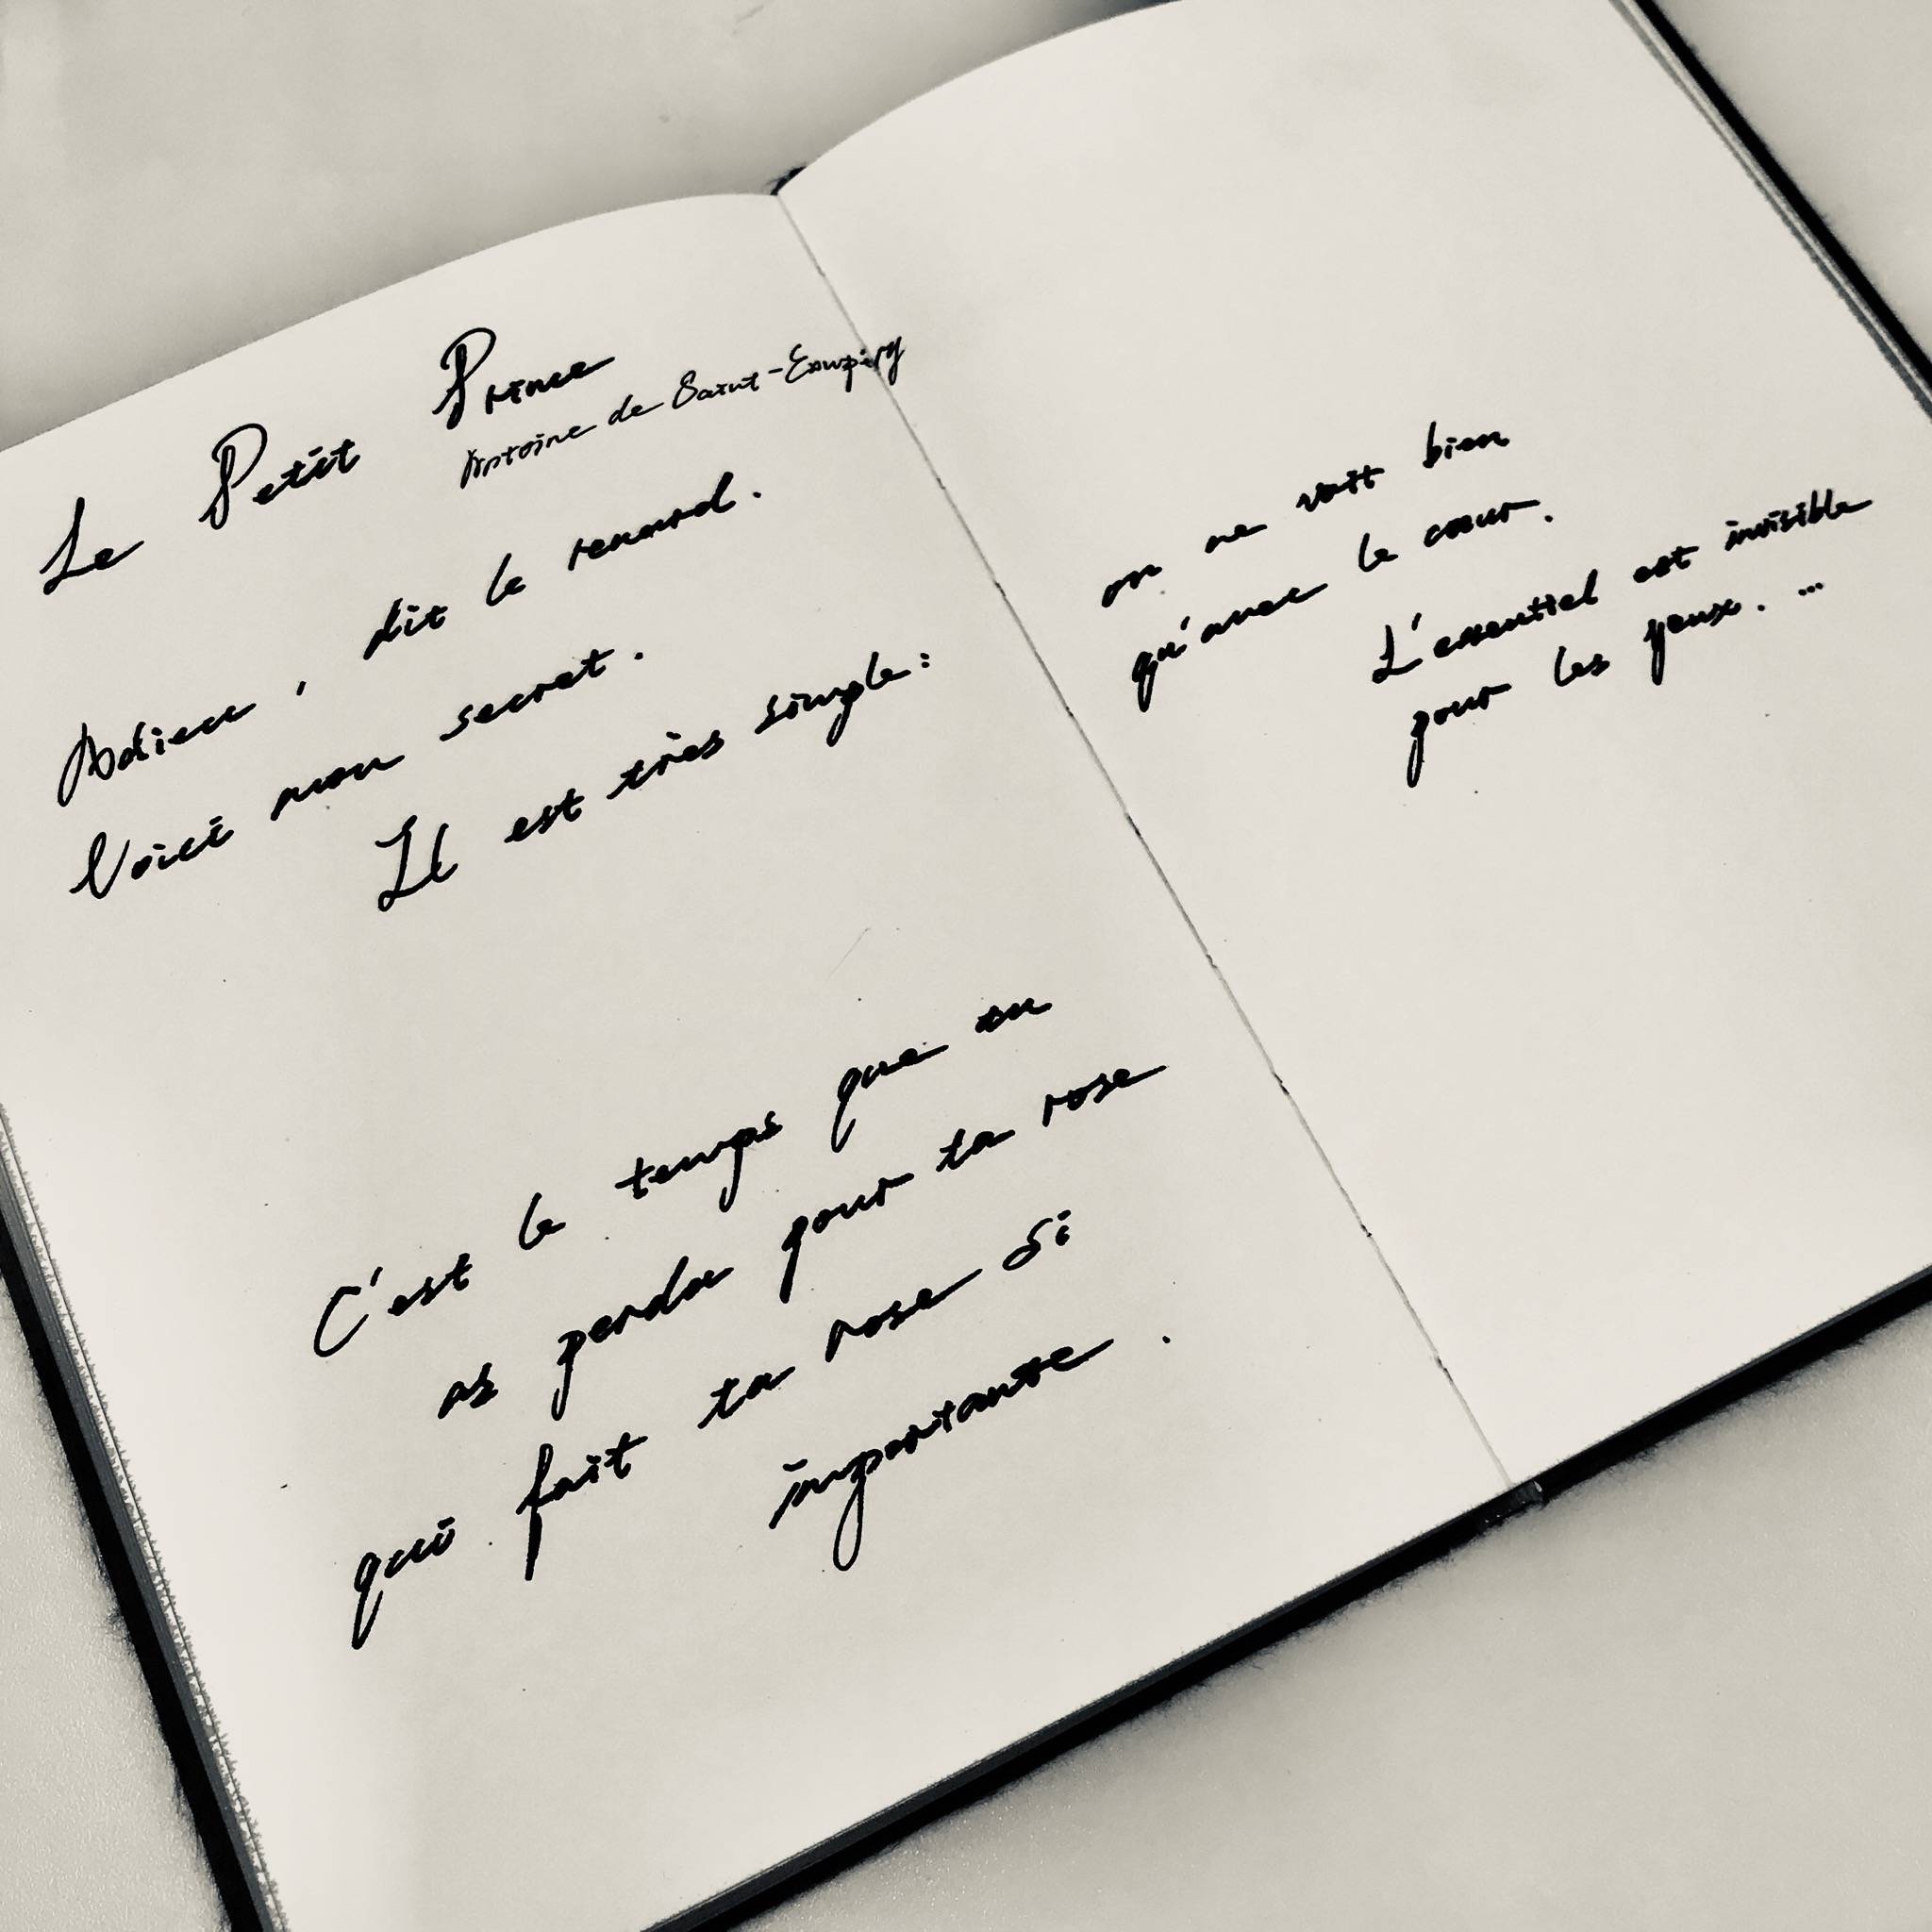 Le Petit Prince
Antoine de Saint-Exupéry
Adieu, dit le renard.
Voici mon secret.
Il est très simple:
C'est le temps que tu
as perdu pour ta rose
qui fait ta rose si
importante.
on ne voit bien
qu'avec le cœur.
L'essentiel est invisible
pour les yeux. ...